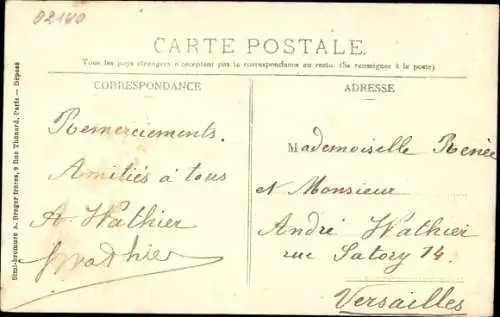 02140
CARTE POSTALE.
Tous les pays étrangers n'acceptent pas la correspondance au recto. (Se renseigner à la poste).
CORRESPONDANCE
ADRESSE
Simi-bromure A. Breger frères, 9 Rue Thénard, Paris — Déposé
Remerciements.
Amitiés à tous
A Wathier
Wathier
Mademoiselle Renée
et Monsieur
André Wathier
rue Satory 14.
Versailles